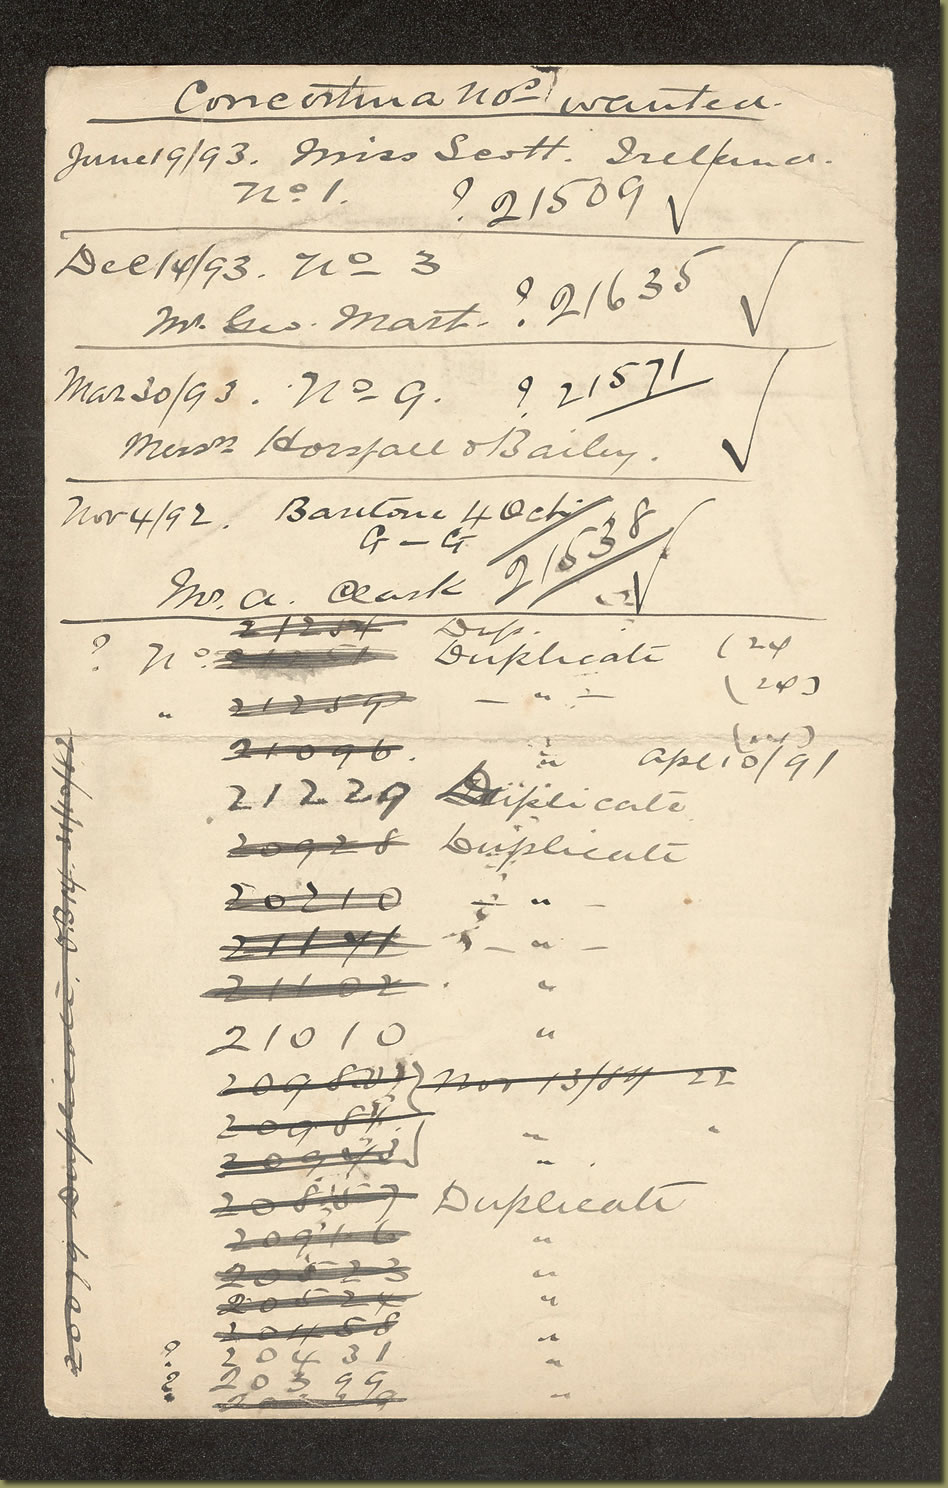 Concertina Nos wanted.
June 19/93. Miss Scott. Ireland.
No 1. ? 21509 ✓
Dec 14/93. No 3
Mr. Geo. Mart. ? 21635 ✓
Mar 30/93. No 9. ? 21571 ✓
Messrs Horsfall & Bailey.
Nov 4/92. Baritone 4 Oct
G – G
Mr. A. Clark 21538 ✓
21254 Dup.
? No. Duplicate (24
" 21259 – " – (24)
21096. " Apl 10/91
21229 Duplicate
20928 Duplicate
20210 – " –
21141 – " –
21102 . "
21010 "
20980 Nov 13/84 22
2098 " "
209 " .
208 7 Duplicate
20916 "
20523 "
20524 "
20458 "
? 20431 "
? 20399 "